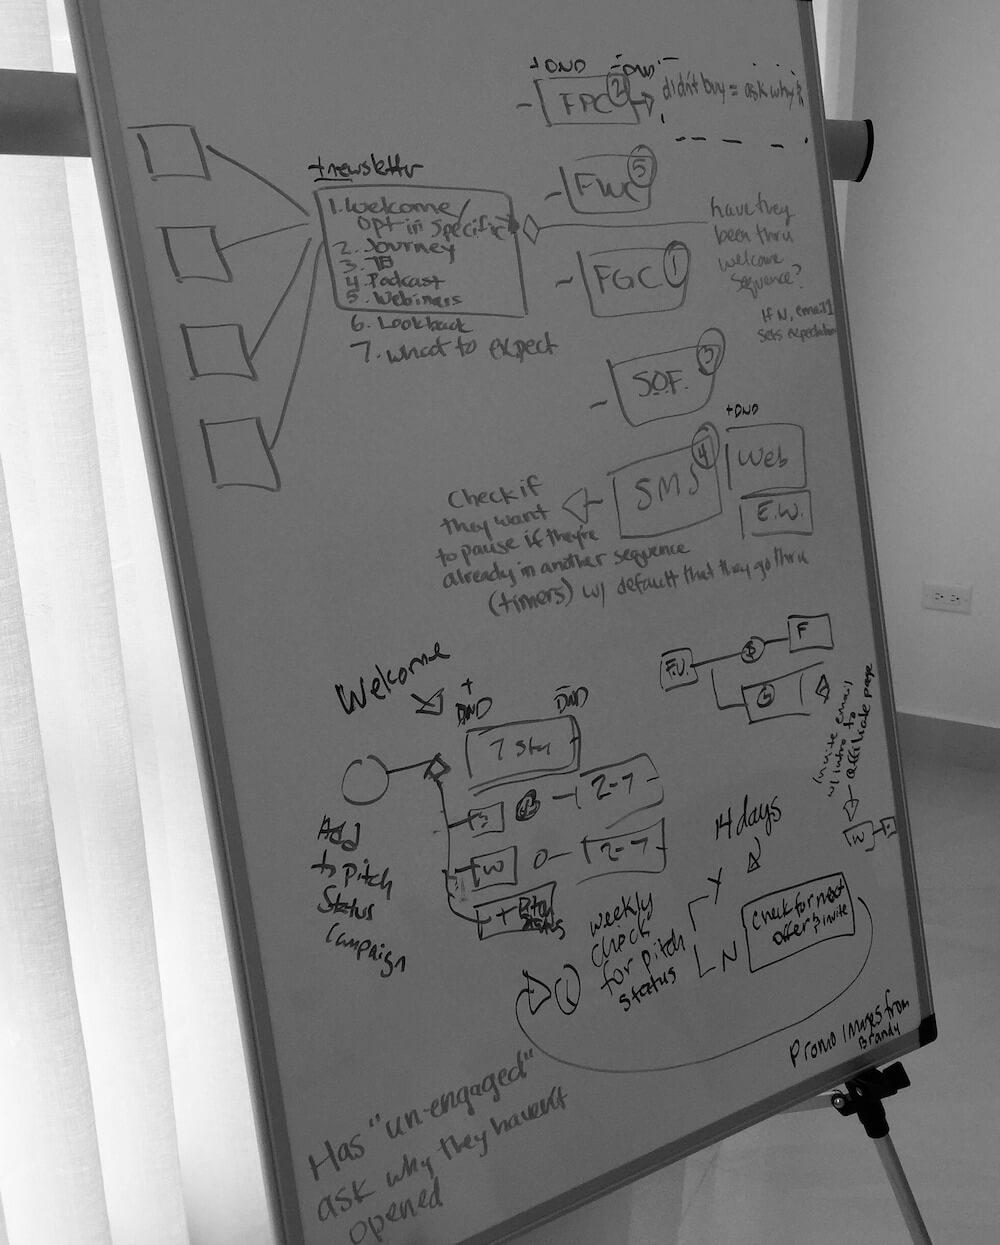 +DND
-DND
FPC 2
didn't buy = ask why?
+newsletter
1. Welcome/
opt-in specific
2. Journey
3. TB
4. Podcast
5. Webinars
6. Look back
7. What to expect
FWC 5
FGC 1
have they
been thru
welcome
sequence?
If N, email 1
sets expectation
S.O.F. 3
+DND
SMS 4
Web
E.W.
Check if
they want
to pause if they're
already in another sequence
(timers) w/ default that they go thru
F.U.
$
F
G
invite email
w/ intro to
affiliate page
W
Welcome
+
DND
-
DND
7
2-7
W
2-7
+ Pitch
Status
Add
to Pitch
Status
Campaign
14 days
weekly
check
for pitch
status
Y
N
Check for next
offer & invite
Promo Images from
Brandy
Has "un-engaged"
ask why they haven't
opened